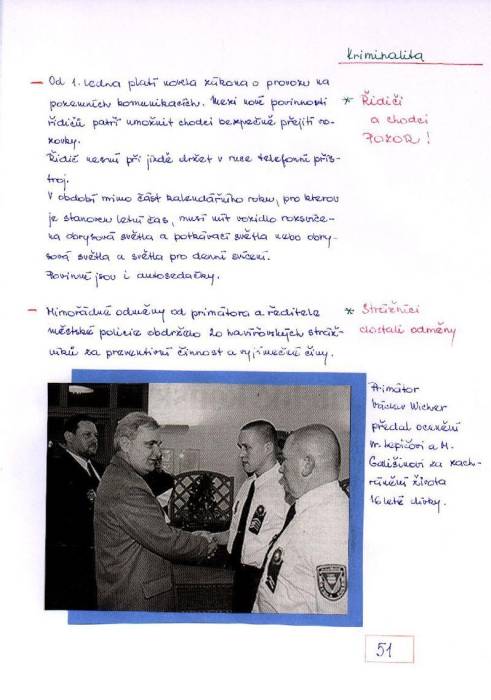 Kriminalita
Od 1. ledna platí novela zákona o provozu na
pozemních komunikacích. Mezi nové povinnosti
řidičů patří umožnit chodci bezpečně přejíti vo-
zovky.
Řidič nesmí při jízdě držet v ruce telefonní přís-
troj.
V období mimo část kalendářního roku, pro kterou
je stanoven letní čas, musí mít vozidlo rozsvíce-
na obrysová světla a potkávací světla nebo obry-
sová světla a světla pro denní svícení.
Povinné jsou i autosedačky.
* Řidiči
a chodci
POZOR!
Mimořádné odměny od primátora a ředitele
městské policie obdrželo 20 havířovských stráž-
níků za preventivní činnost a výjimečné činy.
* Strážníci
dostali odměny
Primátor
Václav
předal ocenění
a M.
za zach-
ránění života
16leté dívky.
51